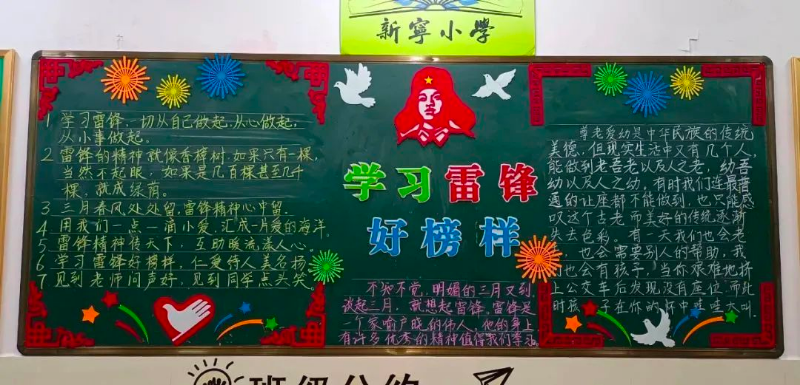 新寧小學
1 学习雷锋,一切从自己做起,从心做起,
从小事做起。
2 雷锋的精神就像香樟树,如果只有一棵,
当然不起眼,如果是几百棵甚至几千
棵,就成绿荫。
3 三月春风处处留,雷锋精神心中留。
4 用我们一点一滴小爱,汇成一片爱的海洋,
5 雷锋精神传天下,互助暖流漾人心。
6 学习雷锋好榜样,仁爱待人美名扬
7 见到老师问声好,见到同学点头笑
学习雷锋
好榜样
不知不觉,明媚的三月又到,
谈起三月,就想起雷锋,雷锋是
一个家喻户晓的伟人,他的身上
有许多优秀的精神值得我们学习
尊老爱幼是中华民族的传统
美德,但现实生活中又有几个人
能做到老吾老以及人之老,幼吾
幼以及人之幼,有时我们连最普
通的让座都不能做到,也只能感
叹这个古老而美好的传统逐渐
失去色彩。有一天我们也会老
也会需要别人的帮助,我
们也会有孩子,当你艰难地挤
上公交车后发现没有座位,而此
时孩子在你的怀中哇哇大叫.
班级公约